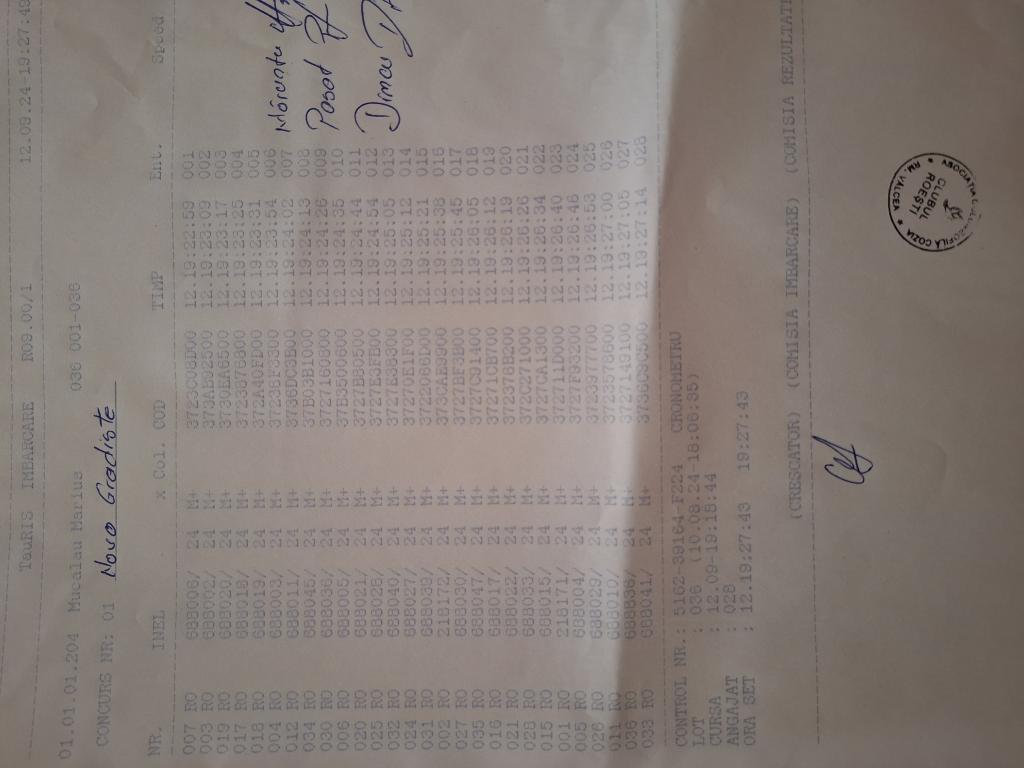 TauRIS IMBARCARE R09.00/1 12.09.24-19:27:49
01.01.01.204 Mucalau Marius 036 001-036
CONCURS NR: 01 Nova Gradiste
NR. INEL x Col. COD TIMP Ent. Speed
007 RO 688006/ 24 M+ 3723C08D00 12.19:23:59 001
003 RO 688002/ 24 M+ 373AB32500 12.19:23:09 002
019 RO 688020/ 24 M+ 3730EA6500 12.19:23:17 003
017 RO 688018/ 24 M+ 3723876800 12.19:23:25 004
018 RO 688019/ 24 M+ 372A40FD00 12.19:23:31 005
004 RO 688003/ 24 M+ 37236F3300 12.19:23:54 006
012 RO 688011/ 24 M+ 3736DC3E00 12.19:24:02 007
034 RO 688045/ 24 M+ 37B03B1000 12.19:24:13 008
030 RO 688036/ 24 M+ 3727160800 12.19:24:26 009
006 RO 688005/ 24 M+ 37B3500600 12.19:24:35 010
020 RO 688021/ 24 M+ 3727B80500 12.19:24:44 011
025 RO 688028/ 24 M+ 3727E3FB00 12.19:24:54 012
032 RO 688040/ 24 M+ 3727E38300 12.19:25:05 013
024 RO 688027/ 24 M+ 37270E1F00 12.19:25:12 014
031 RO 688039/ 24 M+ 3722086D00 12.19:25:21 015
002 RO 218172/ 24 M+ 3730AE3900 12.19:25:38 016
027 RO 688030/ 24 M+ 3727BF3B00 12.19:25:45 017
035 RO 688047/ 24 M+ 3727C91400 12.19:26:05 018
016 RO 688017/ 24 M+ 37271CB700 12.19:26:12 019
021 RO 688022/ 24 M+ 372378B200 12.19:26:19 020
028 RO 688033/ 24 M+ 372C271000 12.19:26:26 021
015 RO 688015/ 24 M+ 3727CA1300 12.19:26:34 022
001 RO 218171/ 24 M+ 372711D000 12.19:26:40 023
005 RO 688004/ 24 M+ 3727F93200 12.19:26:46 024
026 RO 688029/ 24 M+ 3723977700 12.19:26:53 025
011 RO 688010/ 24 M+ 3723578600 12.19:27:00 026
036 RO 688836/ 24 M+ 3727149100 12.19:27:05 027
033 RO 688041/ 24 M+ 12.19:27:14 028
CONTROL NR.: 5162-39164-F224 CRONOMETRU
LOT : 036 (10.08.24-18:06:35)
CURSA : 12.09-19:18:44
ANGAJAT : 028
ORA SET : 12.19:27:43 19:27:43
(CRESCATOR) (COMISIA IMBARCARE) (COMISIA REZULTATE
CLUBUL
ROESTI
RM. VALCEA